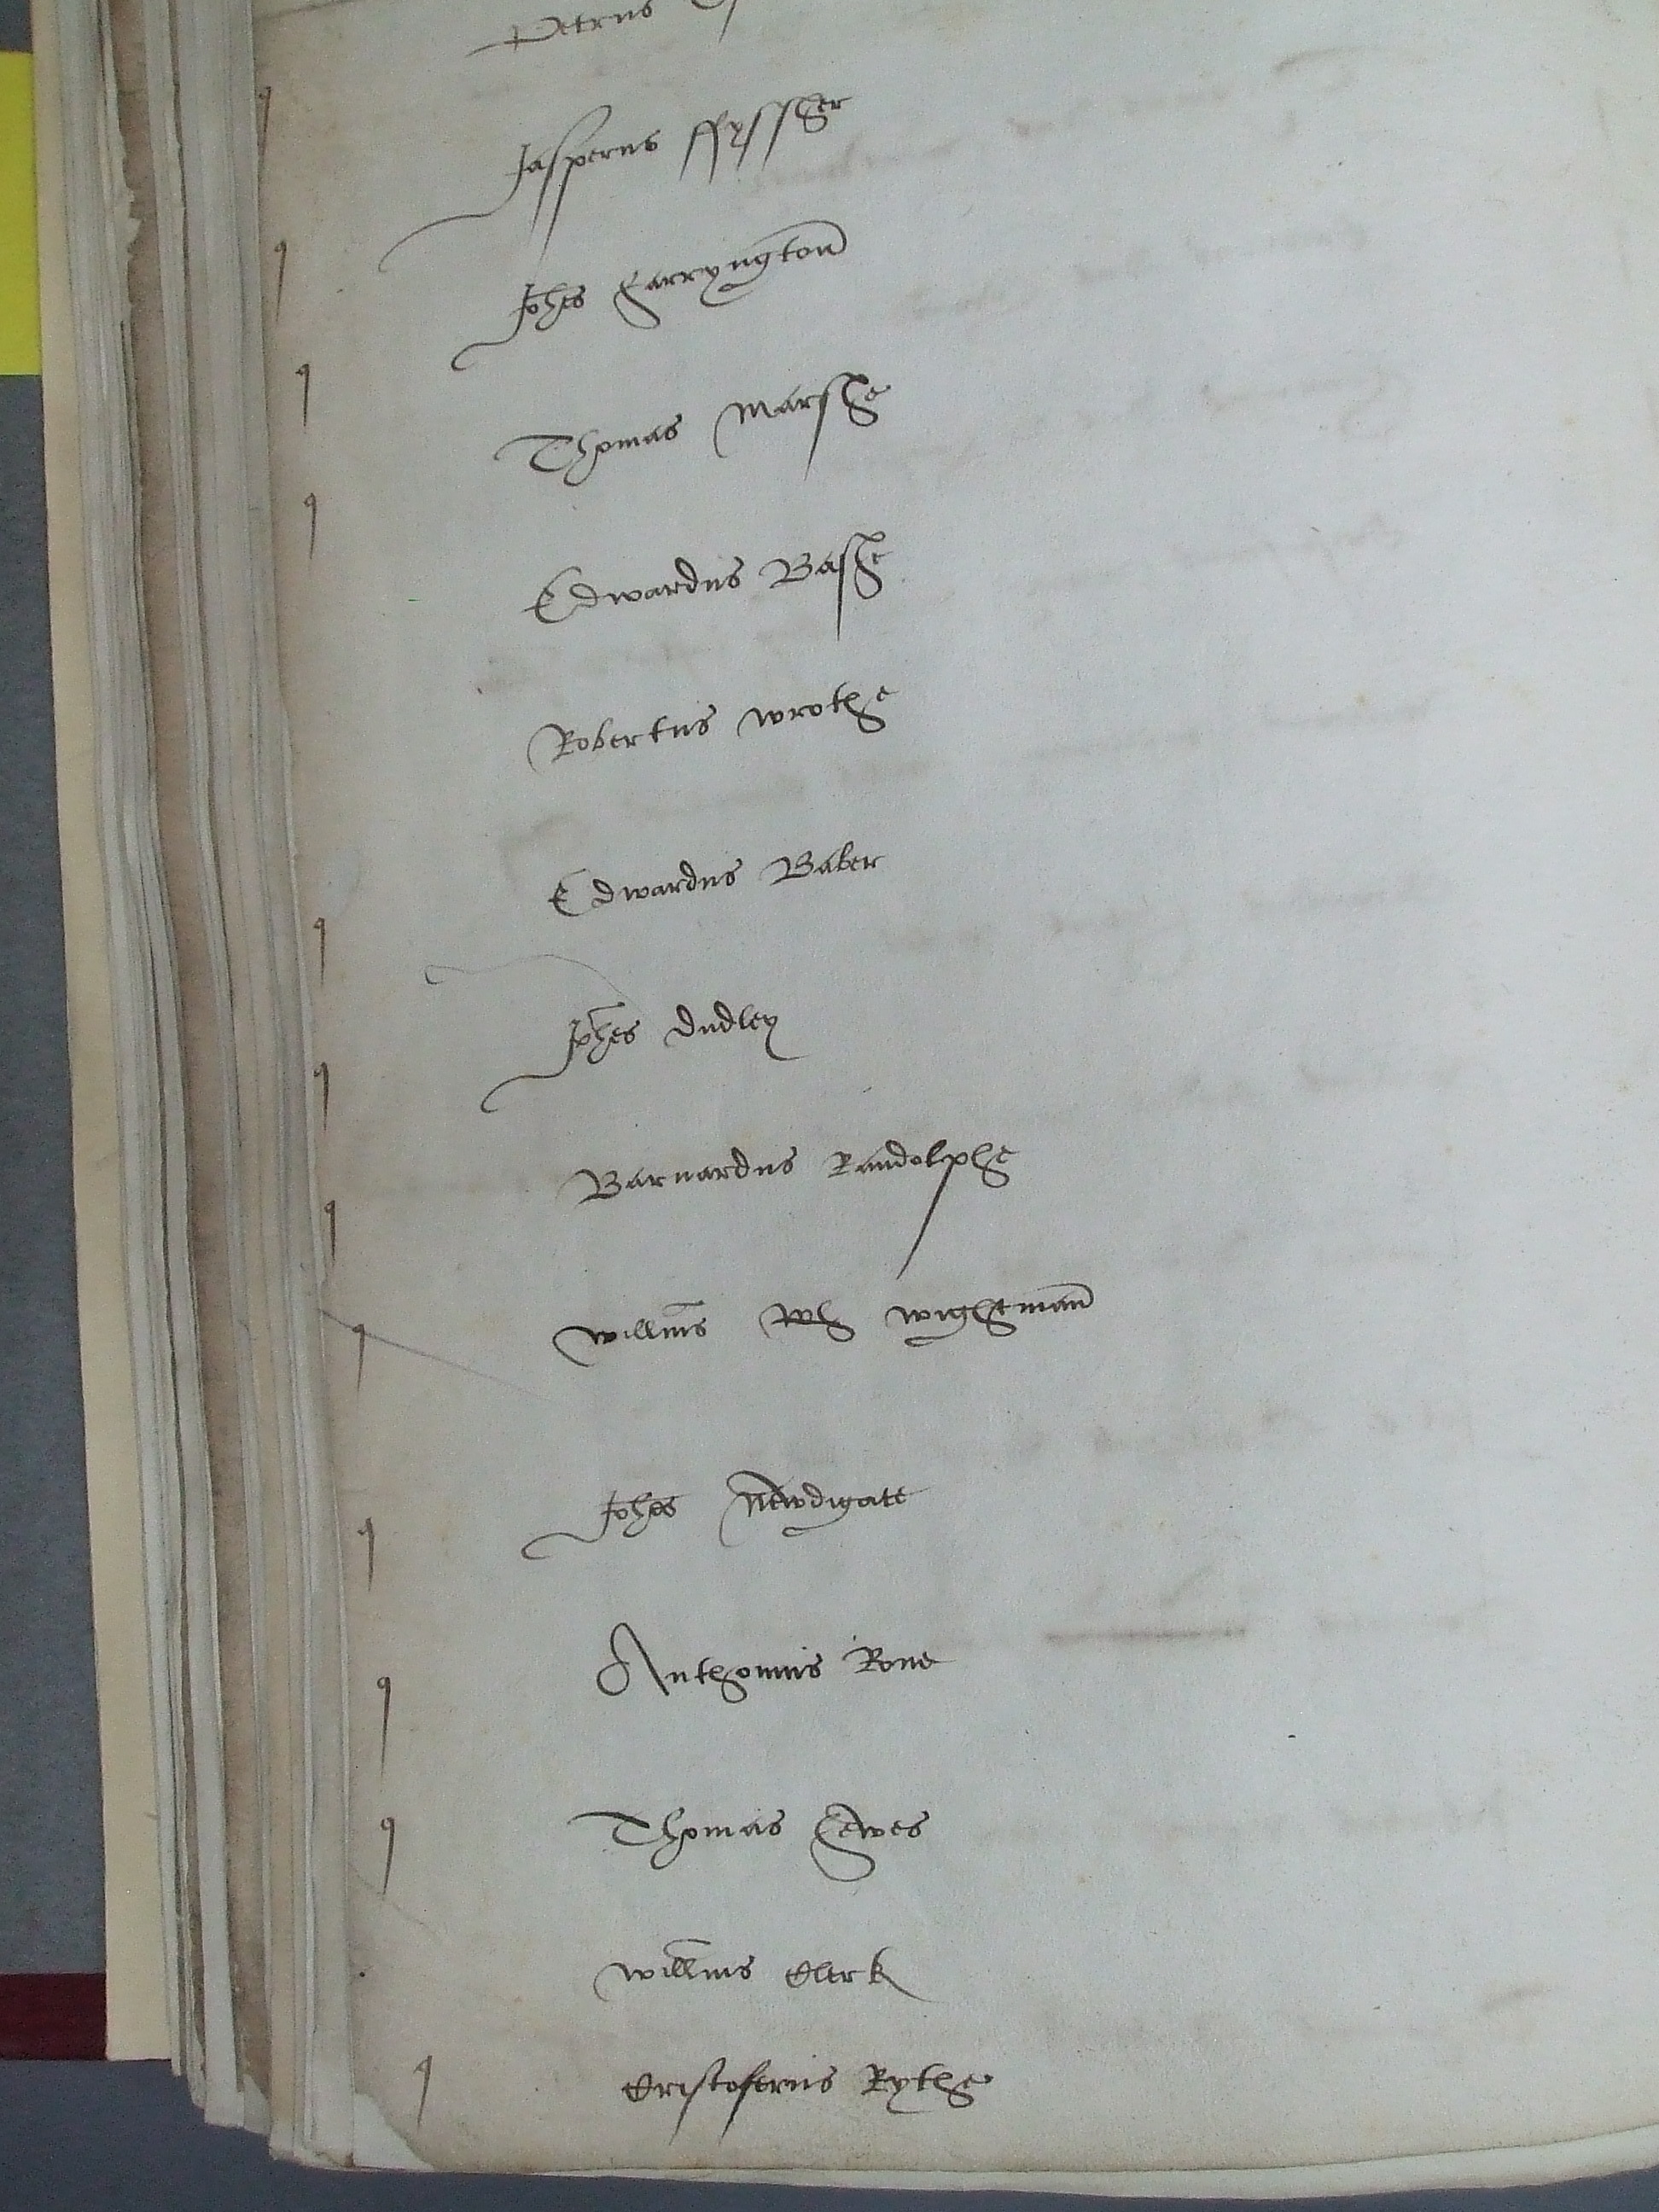 Petrus
Jasperus ffyssher
Johes Harryngton
Thomas Marshe
Edwardus Bashe
Robertus Wrothe
Edwardus Baber
Johes Dudley
Barnardus Randolphe
Willms Wh Wightman
Johes Newdigate
Anthonius Roue
Thomas Hewes
Willms Clerk
Cristoferus Rythe